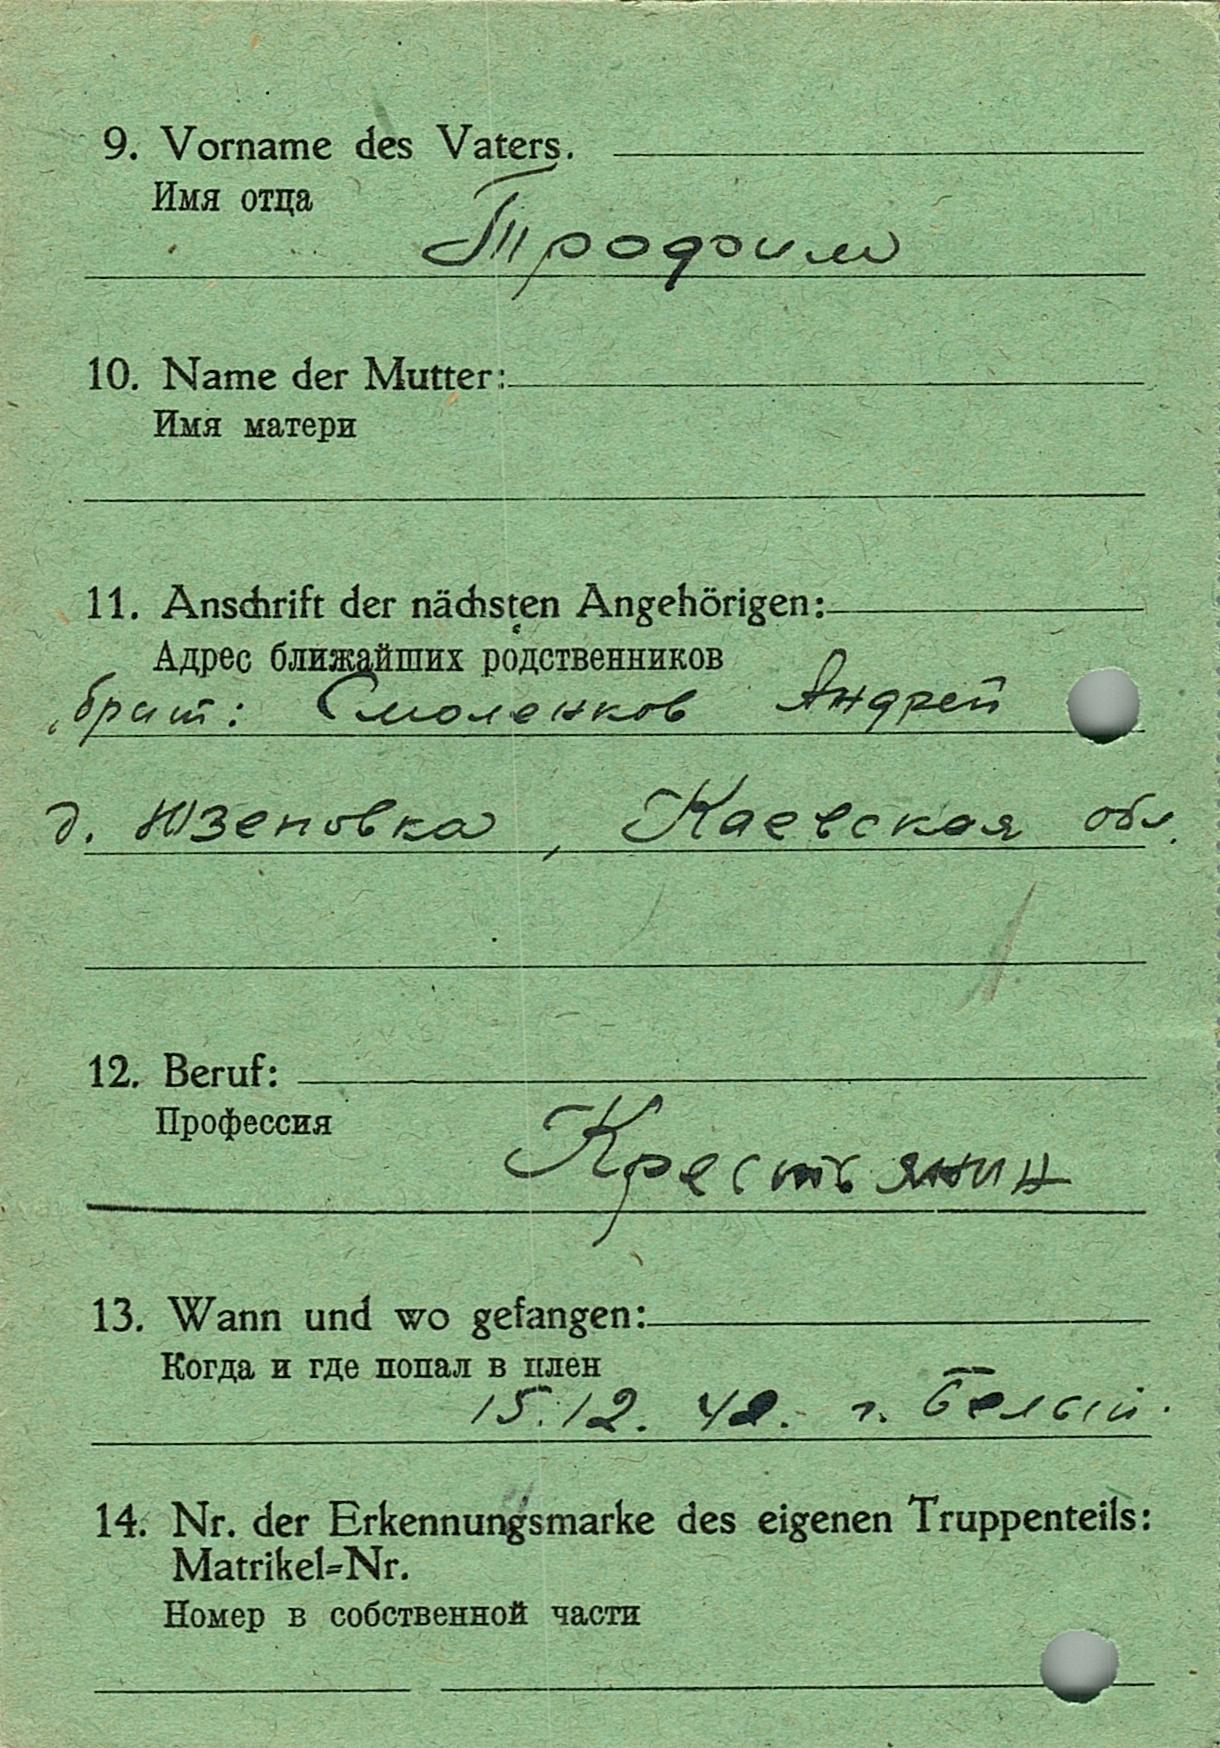 9. Vorname des Vaters.
Имя отца
Трофим
10. Name der Mutter:
Имя матери
11. Anschrift der nächsten Angehörigen:
Адрес ближайших родственников
брат: Смоленков Андрей
д. Юзеповка, Каевская обл.
12. Beruf:
Профессия
Крестьянин
13. Wann und wo gefangen:
Когда и где попал в плен
15.12. 42. г. Белый.
14. Nr. der Erkennungsmarke des eigenen Truppenteils:
Matrikel=Nr.
Номер в собственной части